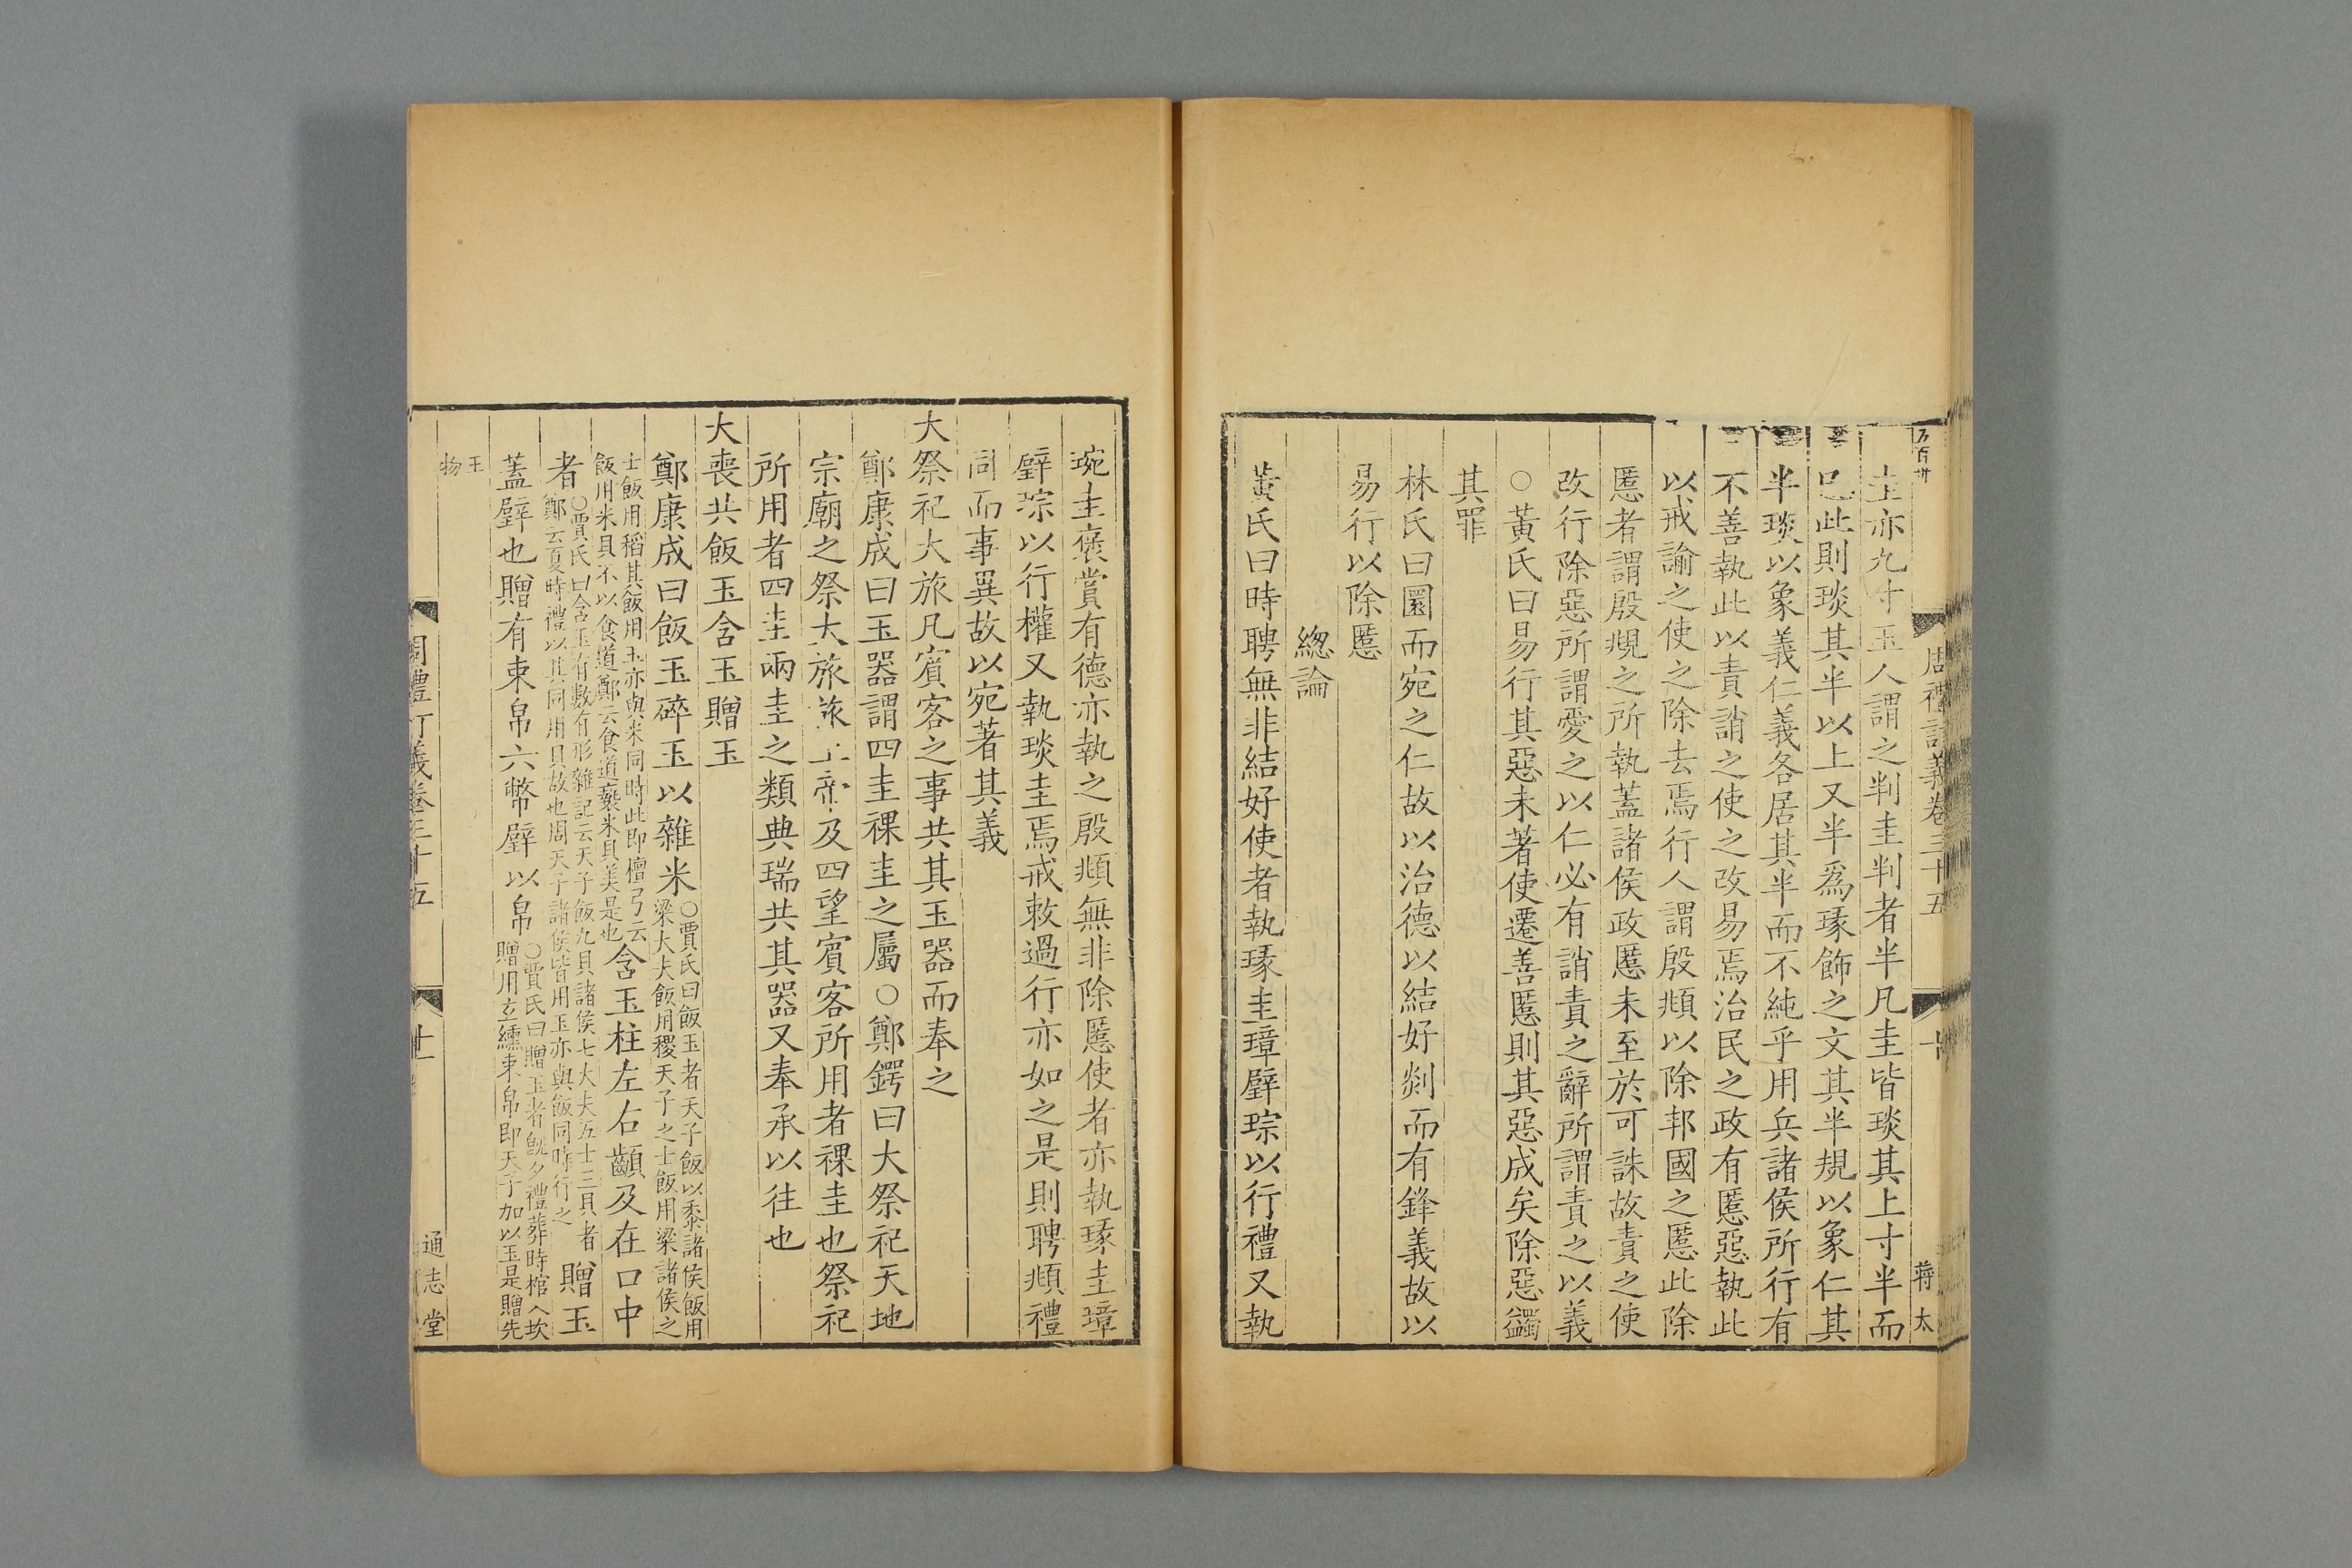 周禮訂義卷三十五
十
蔣太
圭亦九寸玉人謂之判圭判者半凡圭皆琰其上寸半而
巳此則琰其半以上又半爲瑑飾之文其半規以象仁其
半琰以象義仁義各居其半而不純乎用兵諸侯所行有
不善執此以責誚之使之改易焉治民之政有慝惡執此
以戒諭之使之除去焉行人謂殷頫以除邦國之慝此除
慝者謂殷覜之所執蓋諸侯政慝未至於可誅故責之使
改行除惡所謂愛之以仁必有誚責之辭所謂責之以義
○黃氏曰易行其惡未著使遷善慝則其惡成矣除惡蠲
其罪
林氏曰圜而宛之仁故以治德以結好剡而有鋒義故以
易行以除慝
緫論
黃氏曰時聘無非結好使者執瑑圭璋璧琮以行禮又執
琬圭褒賞有德亦執之殷頫無非除慝使者亦執瑑圭璋
璧琮以行權又執琰圭焉戒敕過行亦如之是則聘頫禮
同而事異故以宛著其義
大祭祀大旅凡賓客之事共其玉器而奉之
鄭康成曰玉器謂四圭祼圭之屬○鄭鍔曰大祭祀天地
宗廟之祭大旅旅上帝及四望賓客所用者祼圭也祭祀
所用者四圭兩圭之類典瑞共其器又奉承以往也
大喪共飯玉含玉贈玉
鄭康成曰飯玉碎玉以雜米○賈氏曰飯玉者天子飯以黍諸侯飯用
粱大夫飯用稷天子之士飯用粱諸侯之
士飯用稻其飯用玉亦與米同時此即檀弓云
飯用米貝不以食道鄭云食道褻米貝美是也含玉柱左右齻及在口中
者○賈氏曰含玉有數有形雜記云天子飯九貝諸侯七大夫五士三貝者
鄭云夏時禮以其同用貝故也周天子諸侯皆用玉亦與飯同時行之贈玉
蓋璧也贈有束帛六幣璧以帛○賈氏曰贈玉者旣夕禮葬時棺入坎
贈用玄纁束帛即天子加以玉是贈先
王
物
周禮訂義卷三十五
十一
通志堂